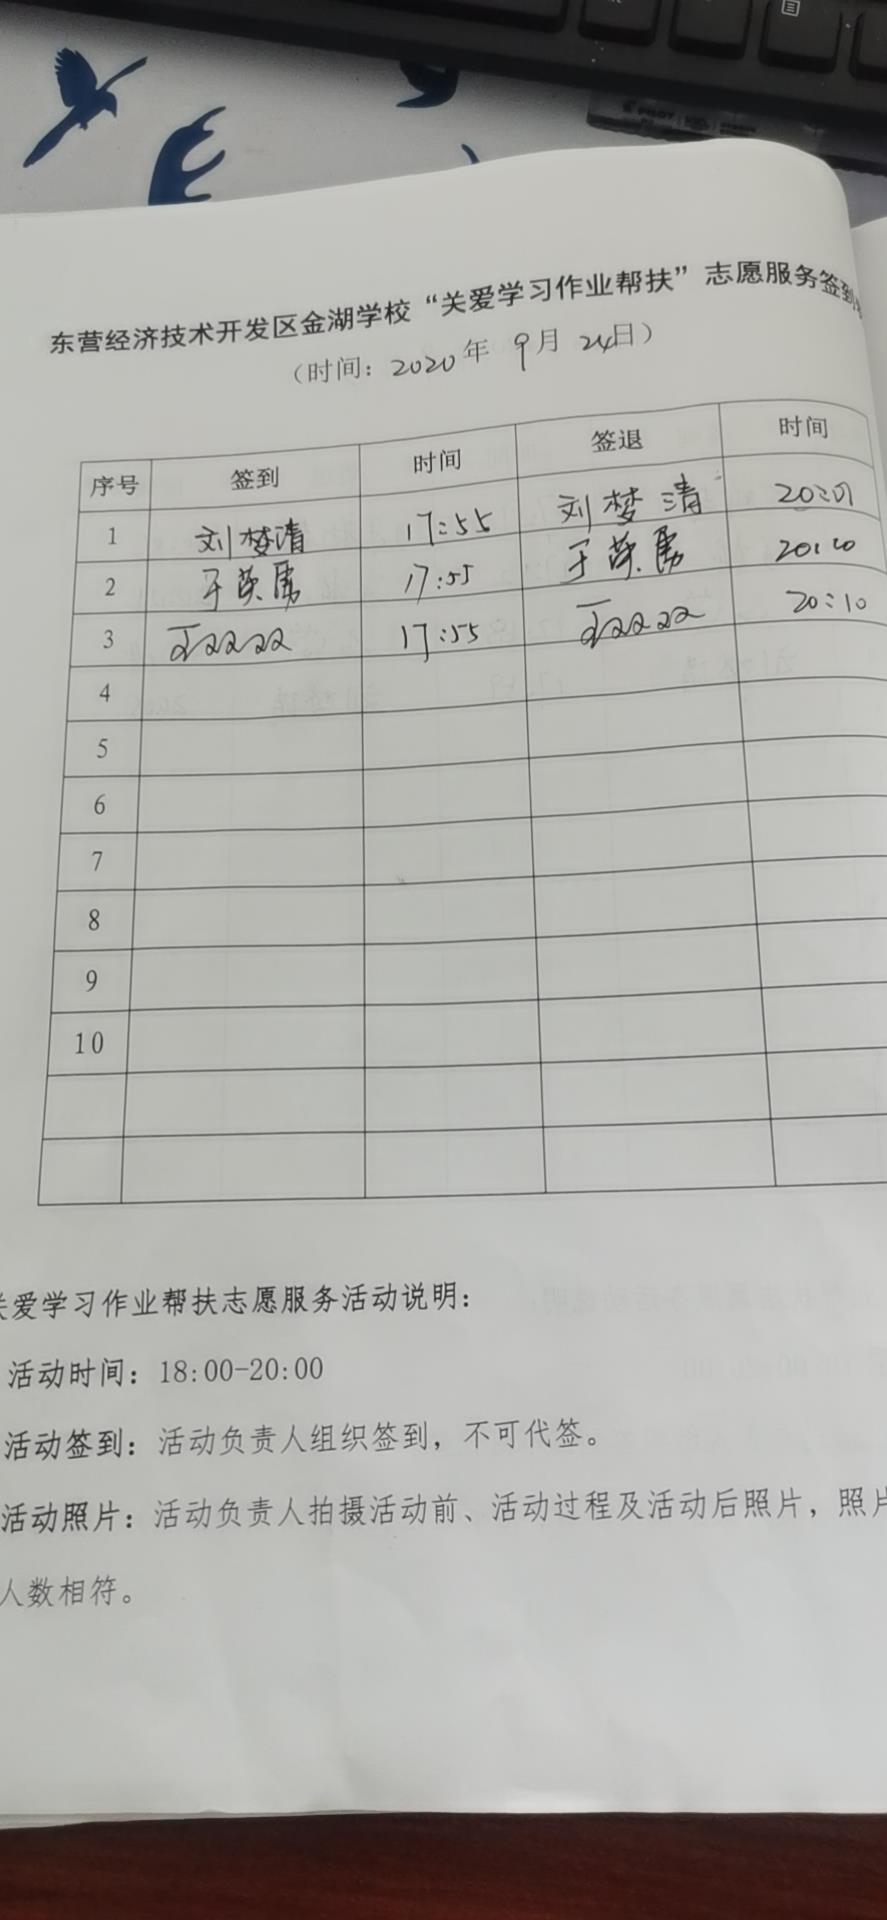 东营经济技术开发区金湖学校“关爱学习作业帮扶”志愿服务签到
（时间：2020年 9月 24日）
序号 签到 时间 签退 时间
1 刘梦清 17:55 刘梦清 20:
2 于英勇 17:55 于英勇 20:10
3 17:55 20:10
4
5
6
7
8
9
10
爱学习作业帮扶志愿服务活动说明：
活动时间：18:00-20:00
活动签到：活动负责人组织签到，不可代签。
活动照片：活动负责人拍摄活动前、活动过程及活动后照片，照片
人数相符。